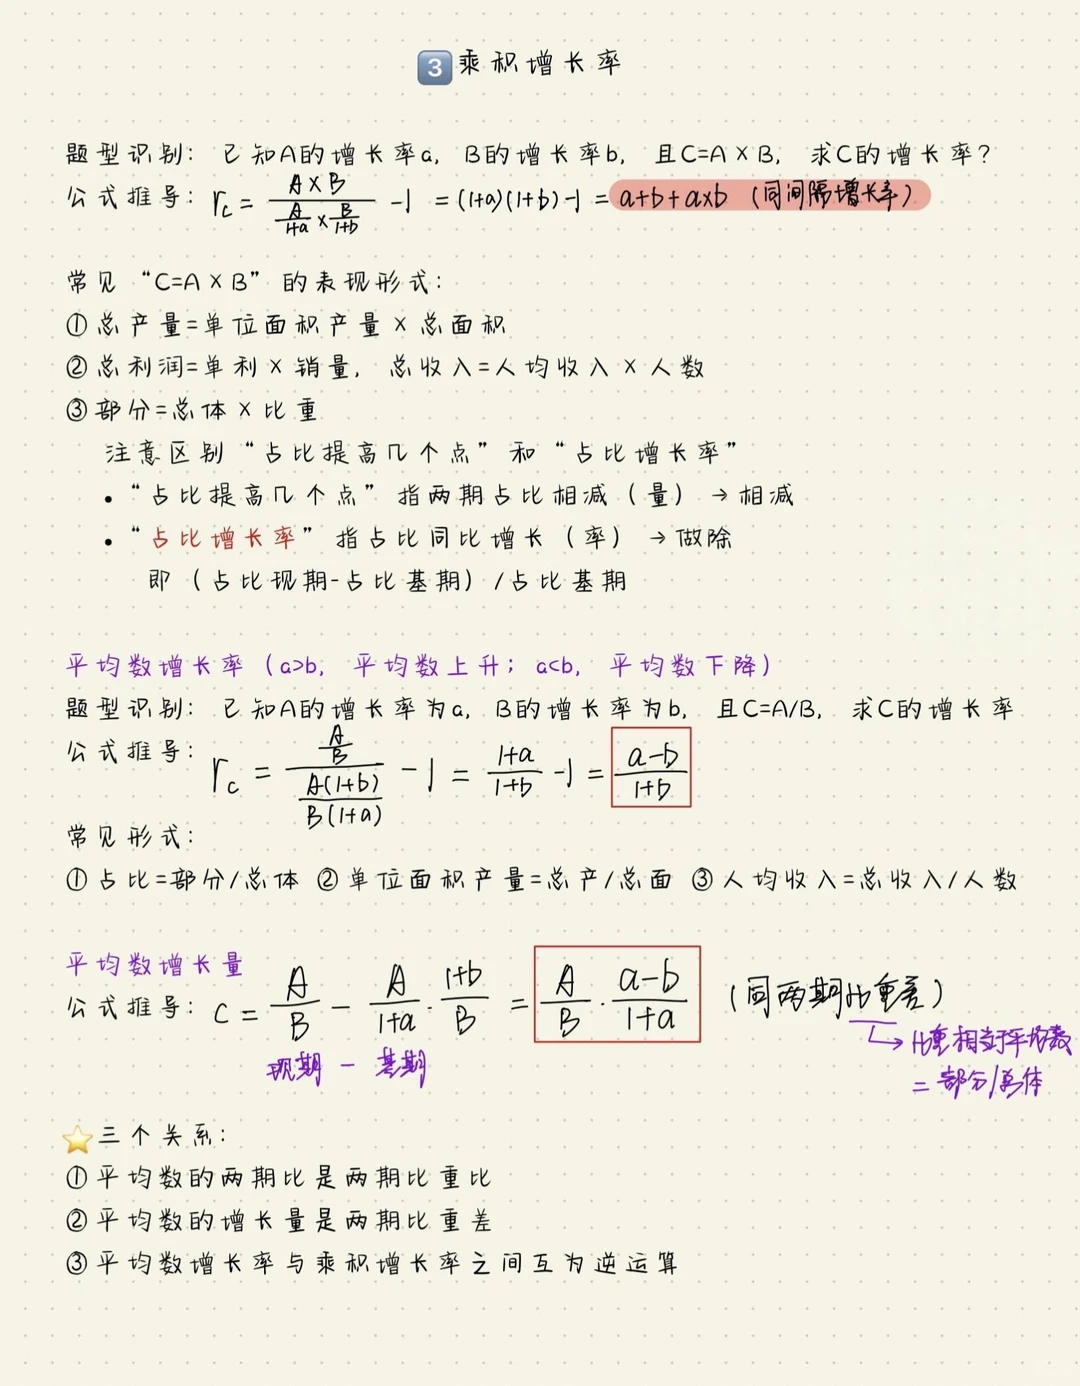 3 乘积增长率
题型识别：已知A的增长率a，B的增长率b，且C=A×B，求C的增长率？
公式推导：r_c = (A×B)/(A/(1+a) × B/(1+b)) -1 =(1+a)(1+b)-1 = a+b+a×b（同间隔增长率）
常见“C=A×B”的表现形式：
①总产量=单位面积产量×总面积
②总利润=单利×销量，总收入=人均收入×人数
③部分=总体×比重
注意区别“占比提高几个点”和“占比增长率”
•“占比提高几个点”指两期占比相减（量）→相减
•“占比增长率”指占比同比增长（率）→做除
即（占比现期-占比基期）/占比基期
平均数增长率（a>b，平均数上升；a<b，平均数下降）
题型识别：已知A的增长率为a，B的增长率为b，且C=A/B，求C的增长率
公式推导：r_c = (A/B)/(A(1+b)/B(1+a)) -1 = (1+a)/(1+b) -1 = (a-b)/(1+b)
常见形式：
①占比=部分/总体 ②单位面积产量=总产/总面 ③人均收入=总收入/人数
平均数增长量
公式推导：C = A/B - A/(1+a) · (1+b)/B = A/B · (a-b)/(1+a)（同两期比重差）
现期 - 基期
→比重相当于平均数
=部分/总体
⭐三个关系：
①平均数的两期比是两期比重比
②平均数的增长量是两期比重差
③平均数增长率与乘积增长率之间互为逆运算